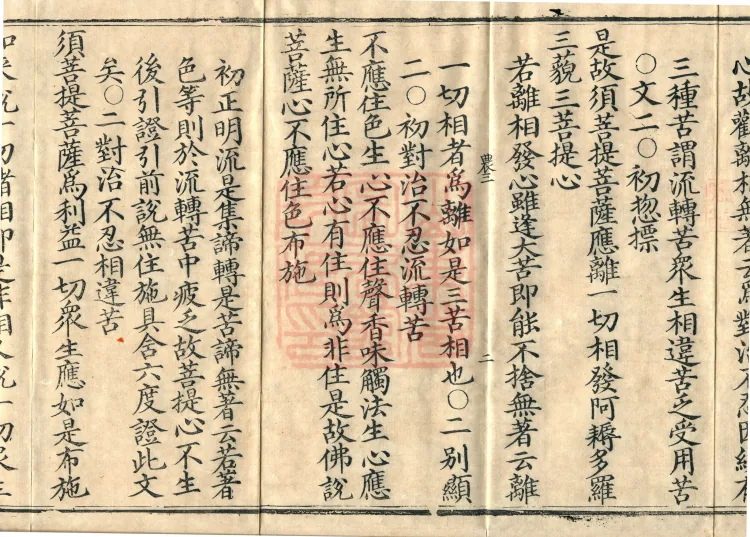 心故勸離相無著云爲對治不忍因緣有
三種苦謂流轉苦衆生相違苦乏受用苦
○文二○初揔摽
是故須菩提菩薩應離一切相發阿耨多羅
三藐三菩提心
若離相發心雖逢大苦即能不捨無著云離
二
一切相者爲離如是三苦相也○二別顯
二○初對治不忍流轉苦
不應住色生心不應住聲香味觸法生心應
生無所住心若心有住則爲非住是故佛說
菩薩心不應住色布施
初正明流是集諦轉是苦諦無著云若著
色等則於流轉苦中疲乏故菩提心不生
後引證引前說無住施具含六度證此文
矣○二對治不忍相違苦
須菩提菩薩爲利益一切衆生應如是布施
如來說一切諸相即是非相又說一切衆生